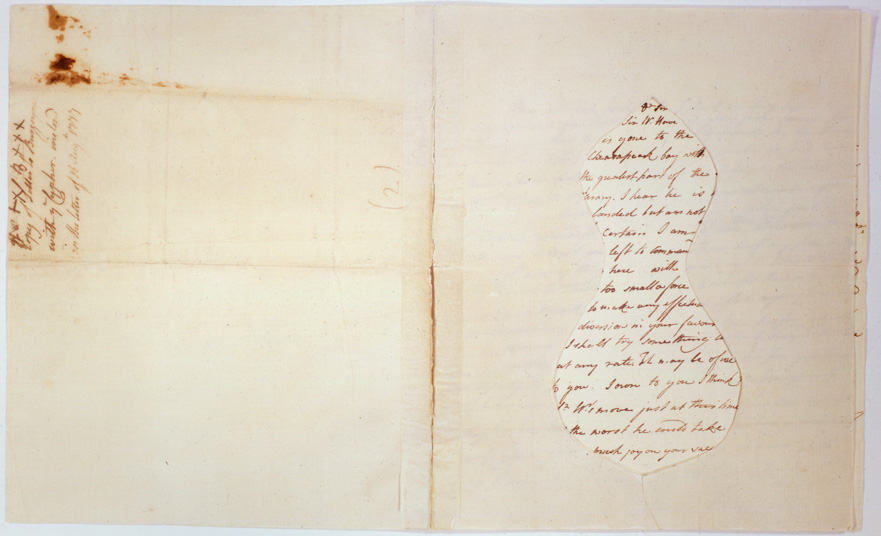 copy of letter to Burgoyne
with y Cypher inclosd
in the letter of
(2)
Sr Wm Howe
is gone to the
Chesapeak bay with
the greatest part of the
army. I hear he is
landed but am not
certain. I am
left to command
here with
too small a force
to make any effectual
diversion in your favour
I shall try something
at any rate. It may be of use
to you. I own to you I think
Sr Wm's move just at this time
the worst he could take
much joy on your